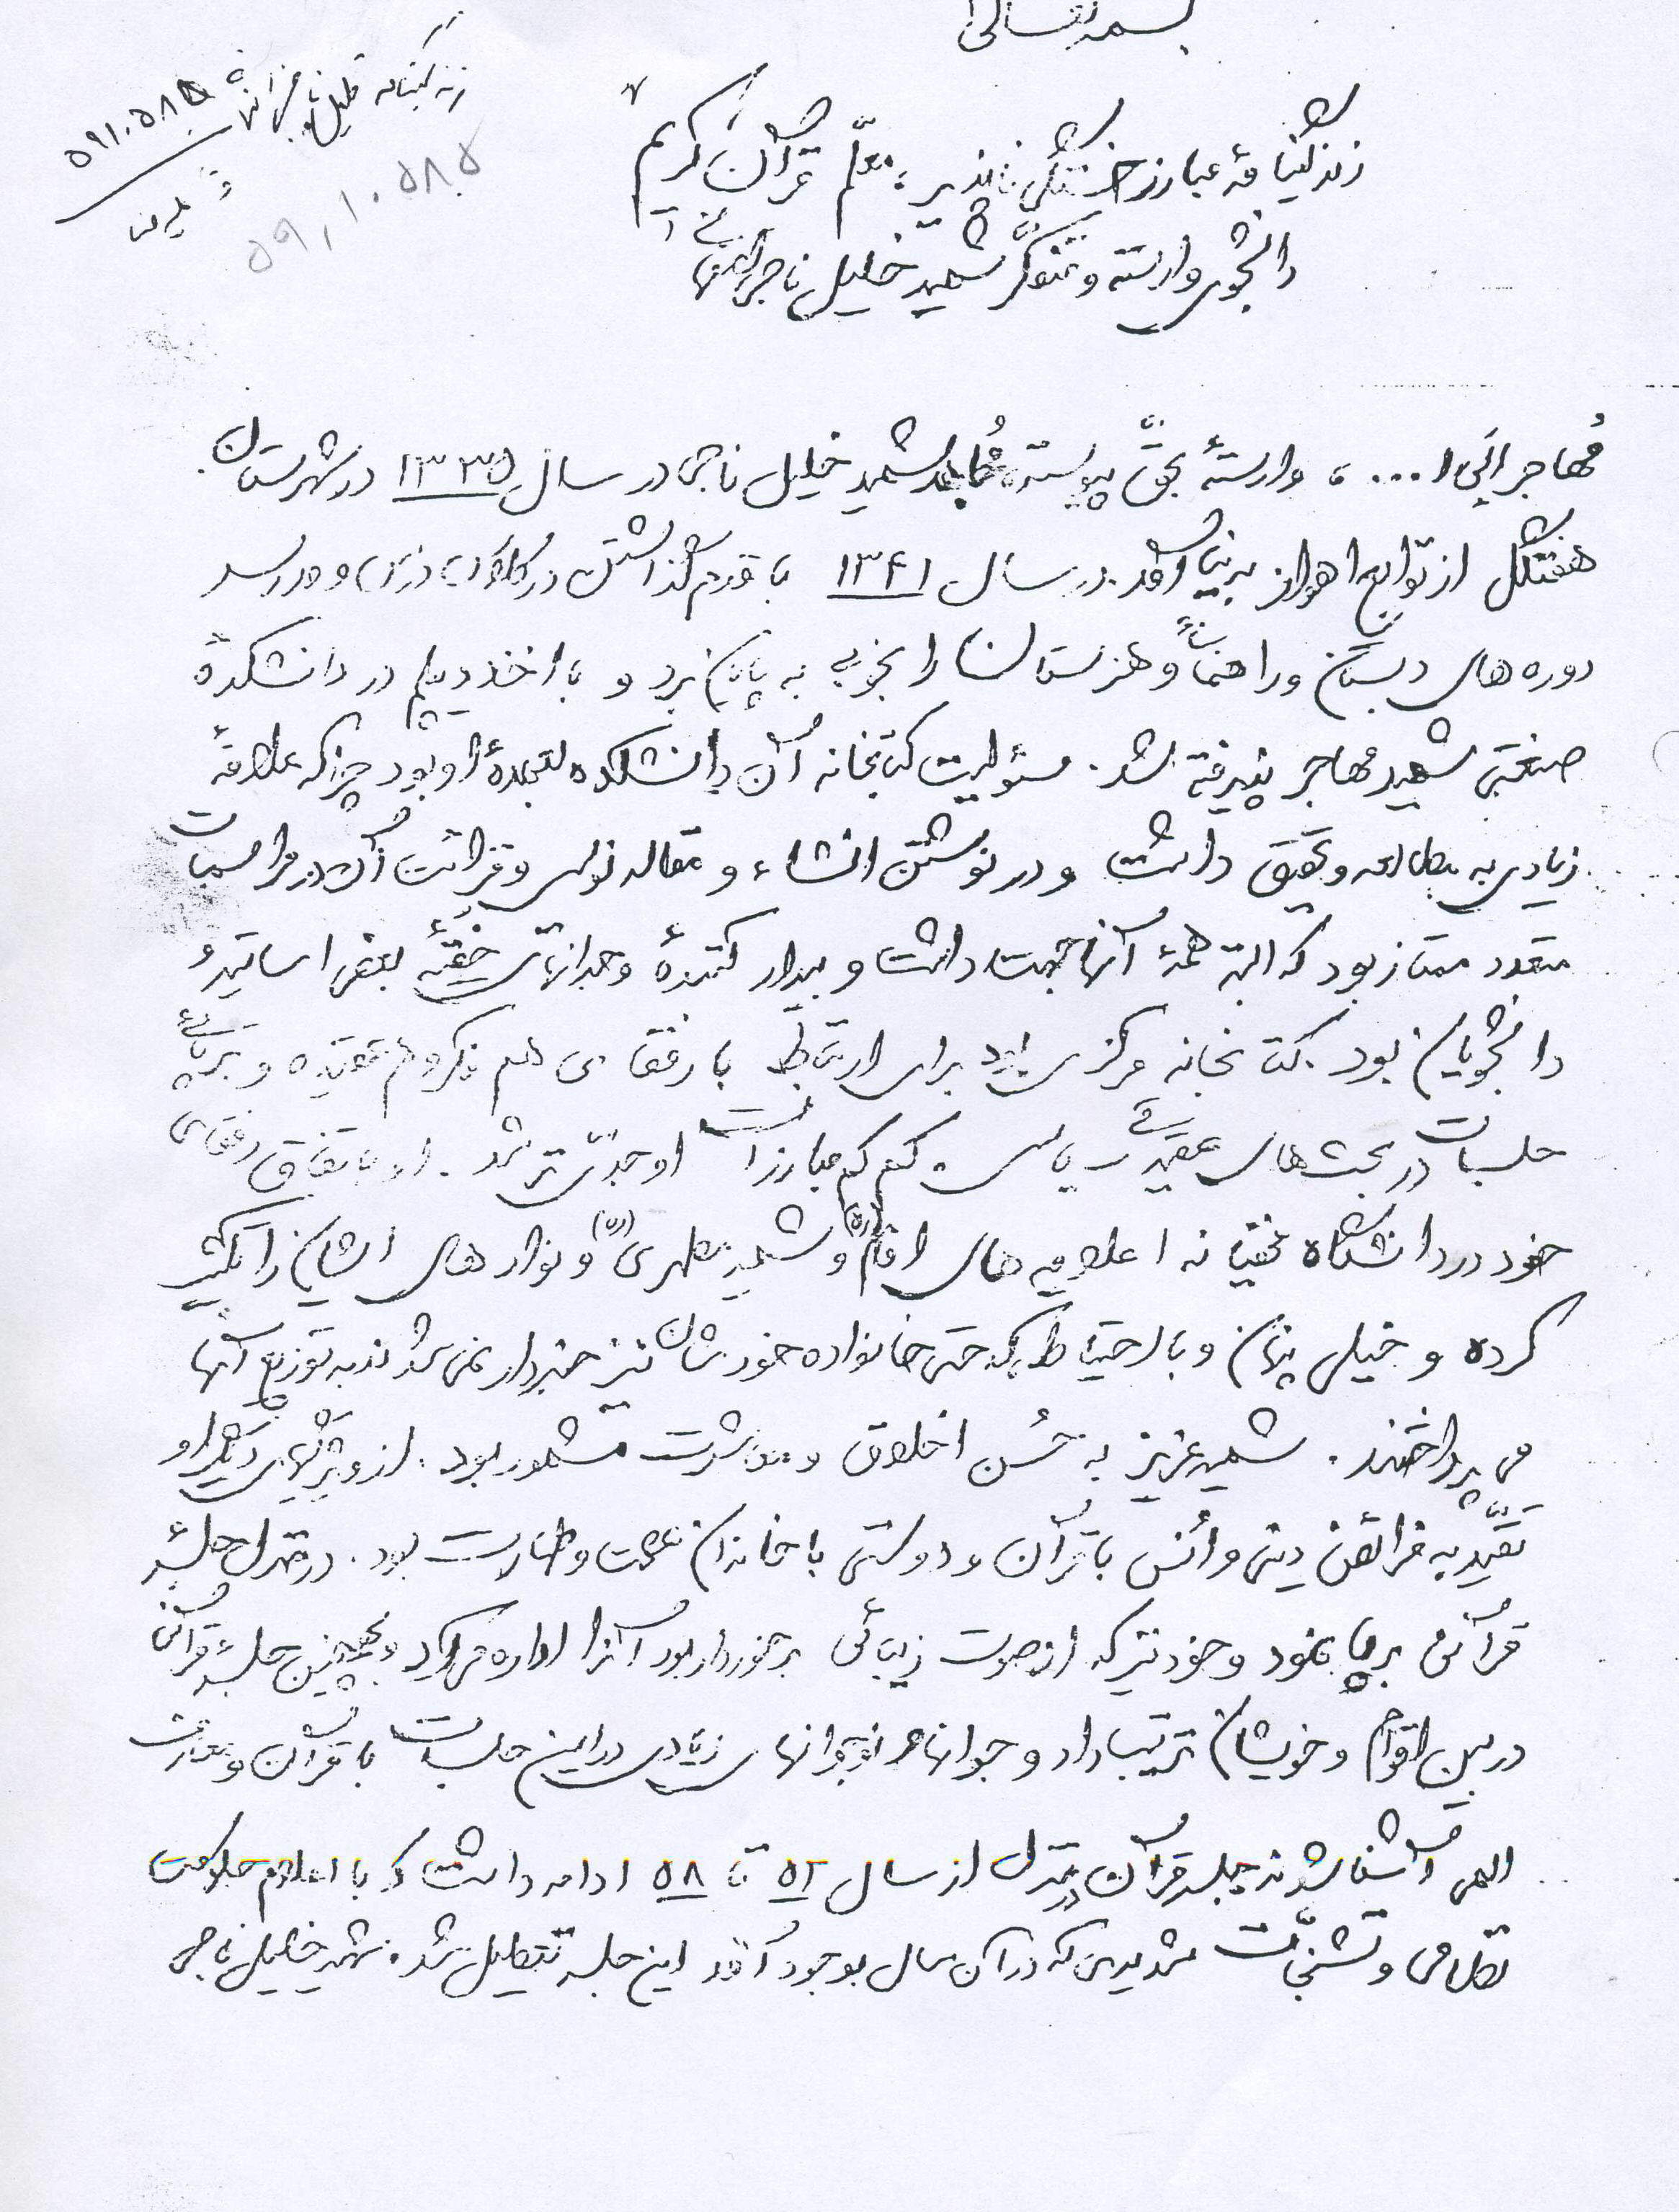 بسمه تعالی
زندگینامه
۵۹۱۰۵۸۵
۵۹۱۰۵۸۵
زندگینامهٔ مبارز خستگی ناپذیر، معلّم قرآن کریم
دانشجوی وارسته و متفکّر شهید خلیل ناجی
مُهاجر الی ا... ، وارستهٔ بحقّ پیوسته، مُجاهد شهید خلیل ناجی در سال ۱۳۳۵ در شهرستان
هفتگل از توابع اهواز بدنیا آمد. در سال ۱۳۴۱ با قدم گذاشتن در کلاس درس و مدرسه
دوره های دبستان و راهنمائی و هنرستان را بخوبی به پایان برد و با اخذ دیپلم در دانشکدهٔ
صنعتی شهید مهاجر پذیرفته شد. مسئولیت کتابخانه آن دانشکده بعهدهٔ او بود چرا که علاقهٔ
زیادی به مطالعه و تحقیق داشت و در نوشتن انشاء و مقاله نویسی و قرائت آن در مراسمات
متعدد ممتاز بود که البته همهٔ آنها جهت داشت و بیدار کنندهٔ وجدانهای خفتهٔ بعضی اساتید و
دانشجویان بود. کتابخانه مرکزی بود برای ارتباط با رفقای هم فکر و هم عقیده و برپائی
جلسات در بحث های عقیدتی سیاسی. کم کم مبارزات او جدّی تر شد. او باتفاق رفقای
خود در دانشگاه مخفیانه اعلامیه های امام (ره) و شهید مطهری (ره) و نوارهای ایشان را تکثیر
کرده و خیلی پنهان و با احتیاط که حتی خانواده خودشان نیز خبردار نمی شدند به توزیع آنها
می پرداختند. شهید عزیز به حُسن اخلاق و معاشرت مشهور بود. از ویژگیهای دیگر او
تقیّد به فرائض دینی و اُنس با قرآن و دوستی با خاندان عصمت و طهارت بود. در منزل جلسهٔ
قرآنی برپا نمود و خود نیز که از صوت زیبائی برخوردار بود آنرا اداره می کرد و همچنین جلسهٔ قرآنی
در بین اقوام و خویشان ترتیب داد و جوانها و نوجوانهای زیادی در این جلسات با قرآن و معارف
الهی آشنا شدند. جلسه قرآن در منزل از سال ۵۲ تا ۵۸ ادامه داشت که با اعلام حکومت
نظامی و تشنّجات شدیدی که در آن سال بوجود آمد این جلسه تعطیل شد. شهید خلیل ناجی